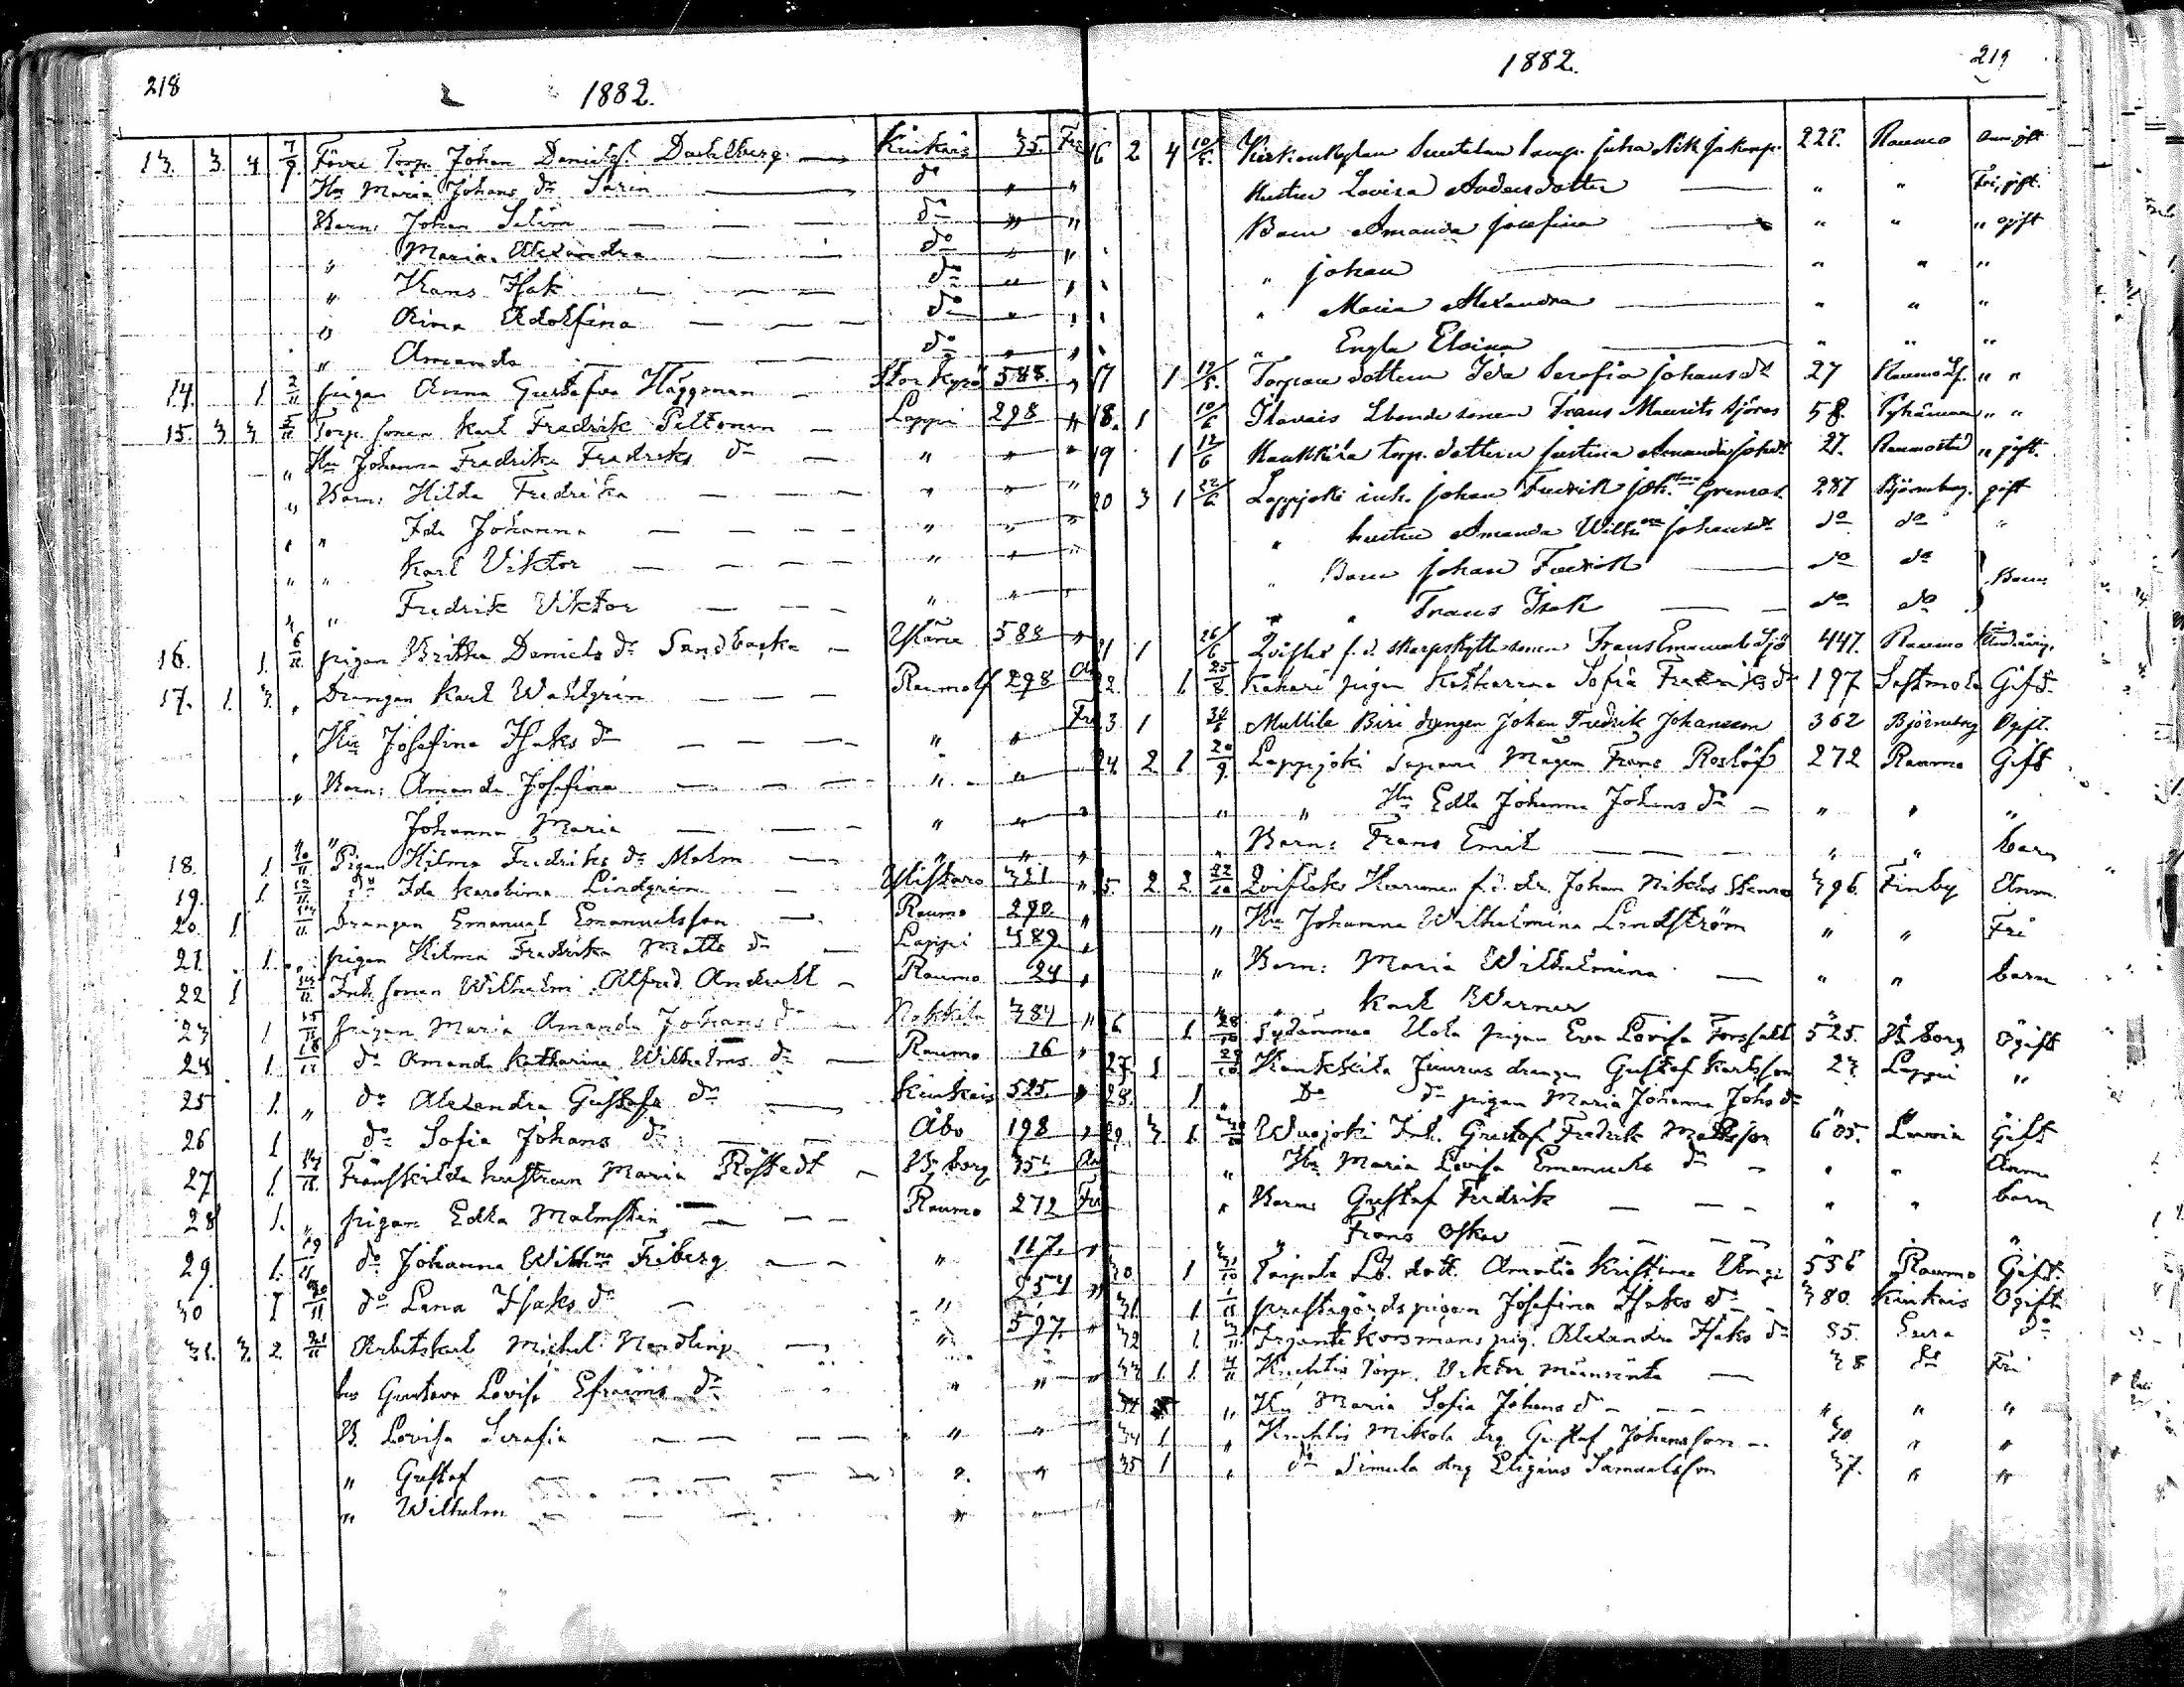 218
1882.
13. 3. 4. 7/9. Förre Torp. Johan Danielss. Dahlberg. Kiukais 35. Fri
Hu Maria Johans dr Sarin do " "
Barn: Johan Selim do " "
" Maria Alexandra do " "
" Frans Isak do " "
" Rina Adolfina do " "
" Amanda do " "
14. 1 2/11 pigan Anna Gustafva Häggman Storkyro 588. "
15. 3 3 5/11 Torp. sonen Karl Fredrik Peltonen Lappi 298 "
" Hu Johanna Fredrika Fredriks dr " " "
" Barn: Hilda Fredrika " " "
" " Ida Johanna " " "
" " Karl Viktor " " "
" " Fredrik Viktor " " "
16. 1. 6/11 pigan Britha Daniels dr Sandbacka 588 "
17. 1. 3. " Drängen Karl Wahlgrén Raumo lf 298
" Hu Josefina Isaks dr " " Fri
" Barn: Amanda Josefina " "
" Johanna Maria " " "
18. 1. 10/11 Pigan Hilma Fredriks dr Malm " " "
19. 1. 12/11 do Ida Karolina Lindgrén Ulfsby 321 "
20. 1 11 drängen Emanuel Emanuelsson Raumo 290. "
21. 1. " pigan Hilma Fredrika Matts dr Lappi 489. "
22 1 Inh. sonen Wilhelm Alfred Andrell Raumo 24 "
23 1 15/11 pigan Maria Amanda Johans dr Nakkila 384 "
24 1. 16/11 do Amanda Katharina Wilhelms dr Raumo 16 "
25 1. " do Alexandra Gustafs dr Kiukais 525. "
26 1 do Sofia Johans dr Åbo 198 "
27 1. 17/11 Frånskilda hustrun Maria Röstedt Bj:borg
28 1. " pigan Edla Malmstén Raumo 272 Fri
29. 1. 19/11 do Johanna Wilhna Friberg " 117. "
30 1 20/11 do Lena Isaks dr " 254 "
31. 3. 2. 21/11 Arbetskarl Michel Nordling " 597. "
hu Gustava Lovisa Efraims dr " "
B. Lovisa Serafia " "
" Gustaf " "
" Wilhelm " "
1882.
219
16 2 4 10/5. 225. Raumo
Hustru Lovisa Andersdotter " " Fri, gift.
Barn Amanda Josefina " " " ogift
" Johan " " "
" Maria Alexandra " " "
" Engla Elvina " " "
17 1 12/5. Torpare dottern Ida Serafia Johansdr 27 Raumo lf. " "
18. 1 10/6 sonen Frans Maurits Sjöroos 58. Pyhämaa " "
19 1 12/6 Kaukkila torp. dottern Justina Amanda Johdr 27. Raumo std " gift.
20 3 1 22/6 Lappjoki inh. Johan Fredrik Joh. Grenros. 287 Björneborg. gift
" hustru Amanda Wilhna Johansdr do do "
" Barn Johan Fredrik do do Barn
" " Frans Isak do do
21 1 26/6 Qvistes f. d. skarpskytte sonen Frans Emanuel Sjö 447. Raumo
22. 1. 25/8. Kahari pigan Katharina Sofia Fredriks dr 197 Sastmola Gift
23 1 Mullila Biri drengen Johan Fredrik Johansson 362 Björneborg Ogift.
24. 2 1 20/9. Lappjoki Tapani Mågen Frans Roslöf 272 Raumo Gift
" " Hu Edla Johanna Johans dr " " "
" Barn: Frans Emil " " barn
25. 2 2. 22/10 Johan Niklas Stenroos 396. Finby
" Hu Johanna Wilhelmina Lindström " " Fri
" Barn: Maria Wilhelmina " " barn
" " Karl Werner " "
26. 1 28/10 Sydänmaa Uola pigan Eva Lovisa Forssell 525. Bj:borg Ogift
27. 1 29/10 Kaukkila Junnus drängen Gustaf Karlsson 23 Lappi "
28. 1. " Do do pigan Maria Johanna Johs dr " "
29. 3. 1. Wuojoki Inh. Gustaf Fredrik Mattsson 605. Luvia Gift
" Hu Maria Lovisa Emanuels dr " "
" Barn: Gustaf Fredrik " " barn
" " Frans Oskar " " "
30. 1 31/10 Taipale Lb. dott. Amalia Kristina 556 Raumo Gift.
31. 1 1/11 prestegårds pigan Josefina Isaks dr 380. Kiukais Ogift
32 1. 3/11 Korsmans pig. Alexandra Isaks dr 85. Eura do
33 1 1 4/11 Kuchtis Torp. Viktor Männistö 28 do Fri
" Hu Maria Sofia Johans dr " " "
34 1 " Kuchtis Mikola drg Gustaf Johansson 30 " "
35 1 " do Simula drg Eligius Samuelsson 37. " "